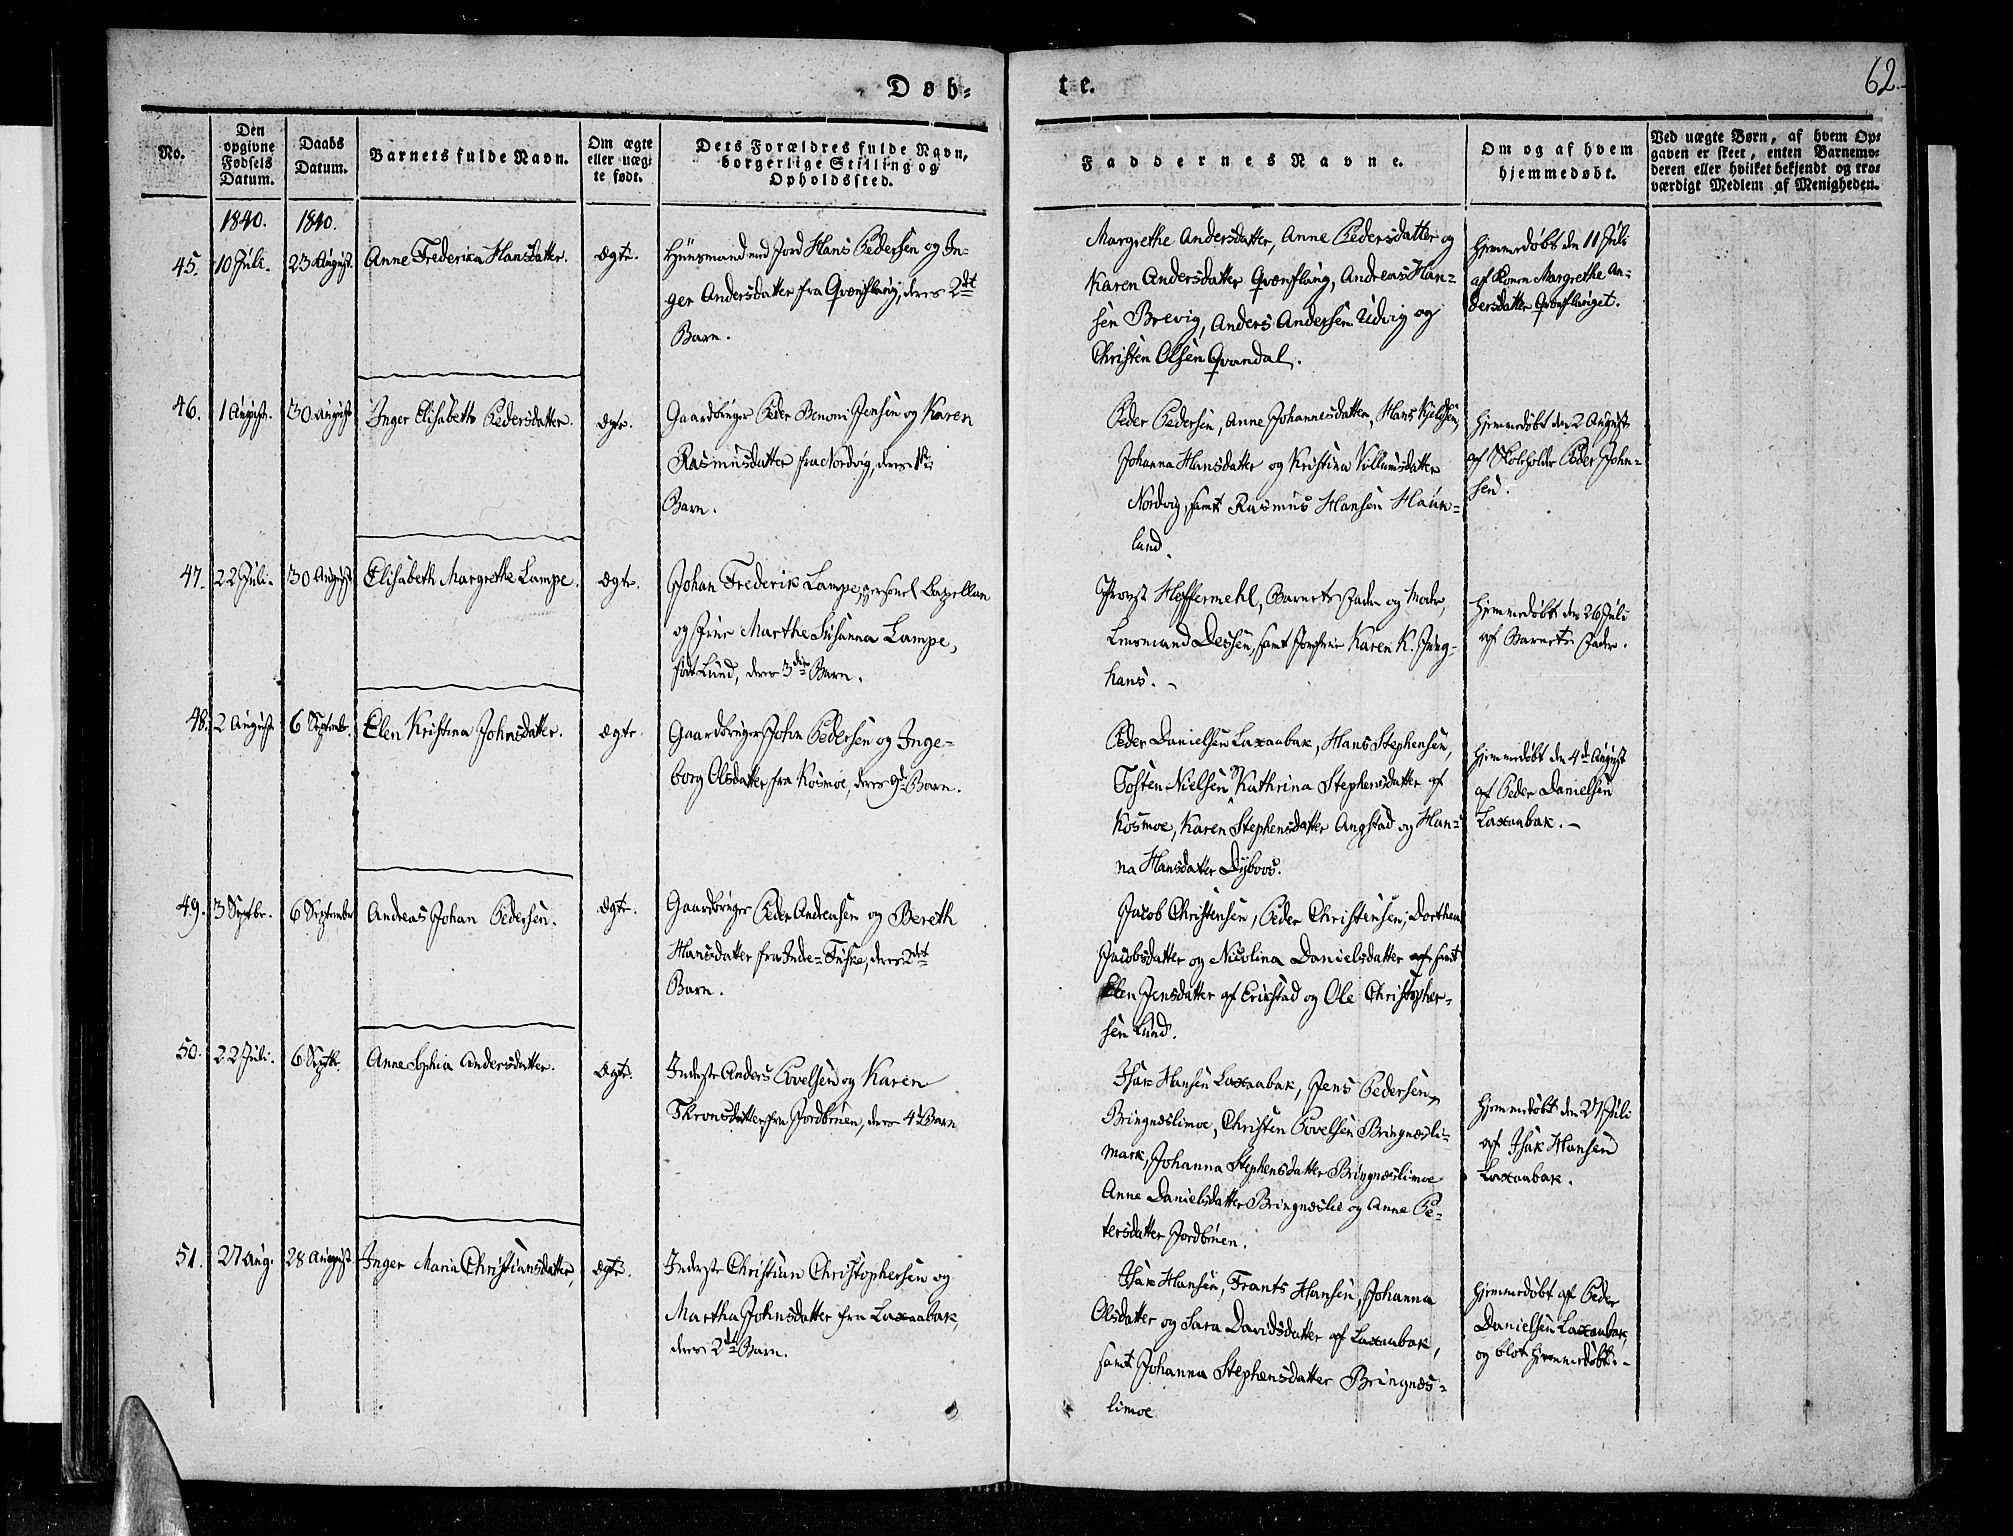 Døb-
te.
62.
No.
Den opgivne Fødsels Datum.
Daabs Datum.
Barnets fulde Navn.
Om ægte eller uægte født.
Dets Forældres fulde Navn, borgerlige Stilling og Opholdssted.
Faddernes Navne.
Om og af hvem hjemmedøbt.
Ved uægte Børn, af hvem Opgaven er skeet, enten Barnemoderen eller hvilket bekjendt og troværdigt Medlem af Menigheden.
1840.
1840.
45.
10 Juli.
23 August.
Anne Frederica Hansdatter.
Ægte.
Huusmand med Jord Hans Pedersen og In-
ger Andersdatter fra Qvænflaug, deres 2det
Barn.
Margrethe Andersdatter, Anne Pedersdatter og
Karen Andersdatter Qvænflaug, Andreas Han-
sen Brevig, Anders Andersen Udvig og
Christen Olsen Qvandal.
Hjemmedøbt den 11 Juli
af Konen Margrethe An-
dersdatter Qvænflauget.
46.
1 August.
30 August
Inger Elisabeth Pedersdatter.
Ægte.
Gaardbruger Peder Benoni Jensen og Karen
Rasmusdatter fra Nordvig, deres 1ste
Barn.
Peder Pedersen, Anne Johannesdatter, Hans Kjeldsen,
Johanna Hansdatter og Kristina Villumsdatter
Nordvig, samt Rasmus Hansen Hauk-
land.
Hjemmedøbt den 2 August
af Skoleholder Peder John-
sen.
47.
22 Juli.
30 August
Elisabeth Margrethe Lampe.
Ægte.
Johan Frederik Lampe, personel Capellan
og Frue Marthe Susanna Lampe,
født Lund, deres 3die Barn.
Provst Heffermehl, Barnets Fader og Moder,
Lensmand Dessen, samt Jomfrue Karen K. Jung-
hans.
Hjemmedøbt den 26 Juli
af Barnets Fader.
48.
2 August
6 Septembr.
Elen Kristina Johnsdatter.
Ægte
Gaardbruger John Pedersen og Inge-
borg Olsdatter fra Kosmoe, deres 9de Barn.
Peder Danielsen Laxaabak, Hans Stephensen,
Tosten Nielsen og Kathrina Stephensdatter af
Kosmoe, Karen Stephensdatter Angstad og Han-
na Hansdatter Dybvos.
Hjemmedøbt den 4de August
af Peder Danielsen
Laxaabak.
49.
3 Septbr.
6 September
Andreas Johan Pedersen.
Ægte.
Gaardbruger Peder Andreasen og Bereth
Hansdatter fra Inde-Fiske, deres 2det
Barn.
Jacob Christensen, Peder Christensen, Dorthea
Jacobsdatter og Nicolina Danielsdatter af samt
Elen Jensdatter af Erikstad og Ole Christopher-
sen Lund.
50.
22 Juli.
6 Septbr.
Anne Sophia Andersdatter.
Ægte.
Inderste Anders Povelsen og Karen
Thronsdatter fra Jordbruen, deres 4de Barn
Isak Hansen Laxaabak, Jens Pedersen
Bringnæslimoe, Christen Povelsen Bringnæsli-
mark, Johanna Stephensdatter Bringnæslimoe
Anne Danielsdatter Bringnæslie og Anne Pe-
tersdatter Jordbruen.
Hjemmedøbt den 27 Juli
af Isak Hansen
Laxaabak.
51.
27 Aug.
28 August.
Inger Maria Christiansdatter,
Ægte.
Inderste Christian Christophersen og
Martha Johnsdatter fra Laxaabak,
deres 2det Barn.
Isak Hansen, Frants Hansen, Johanna
Olsdatter og Sara Davidsdatter af Laxaabak,
samt Johanna Stephensdatter Bringnæs-
limoe
Hjemmedøbt af Peder
Danielsen Laxaabak,
og blot hjemmedøbt.